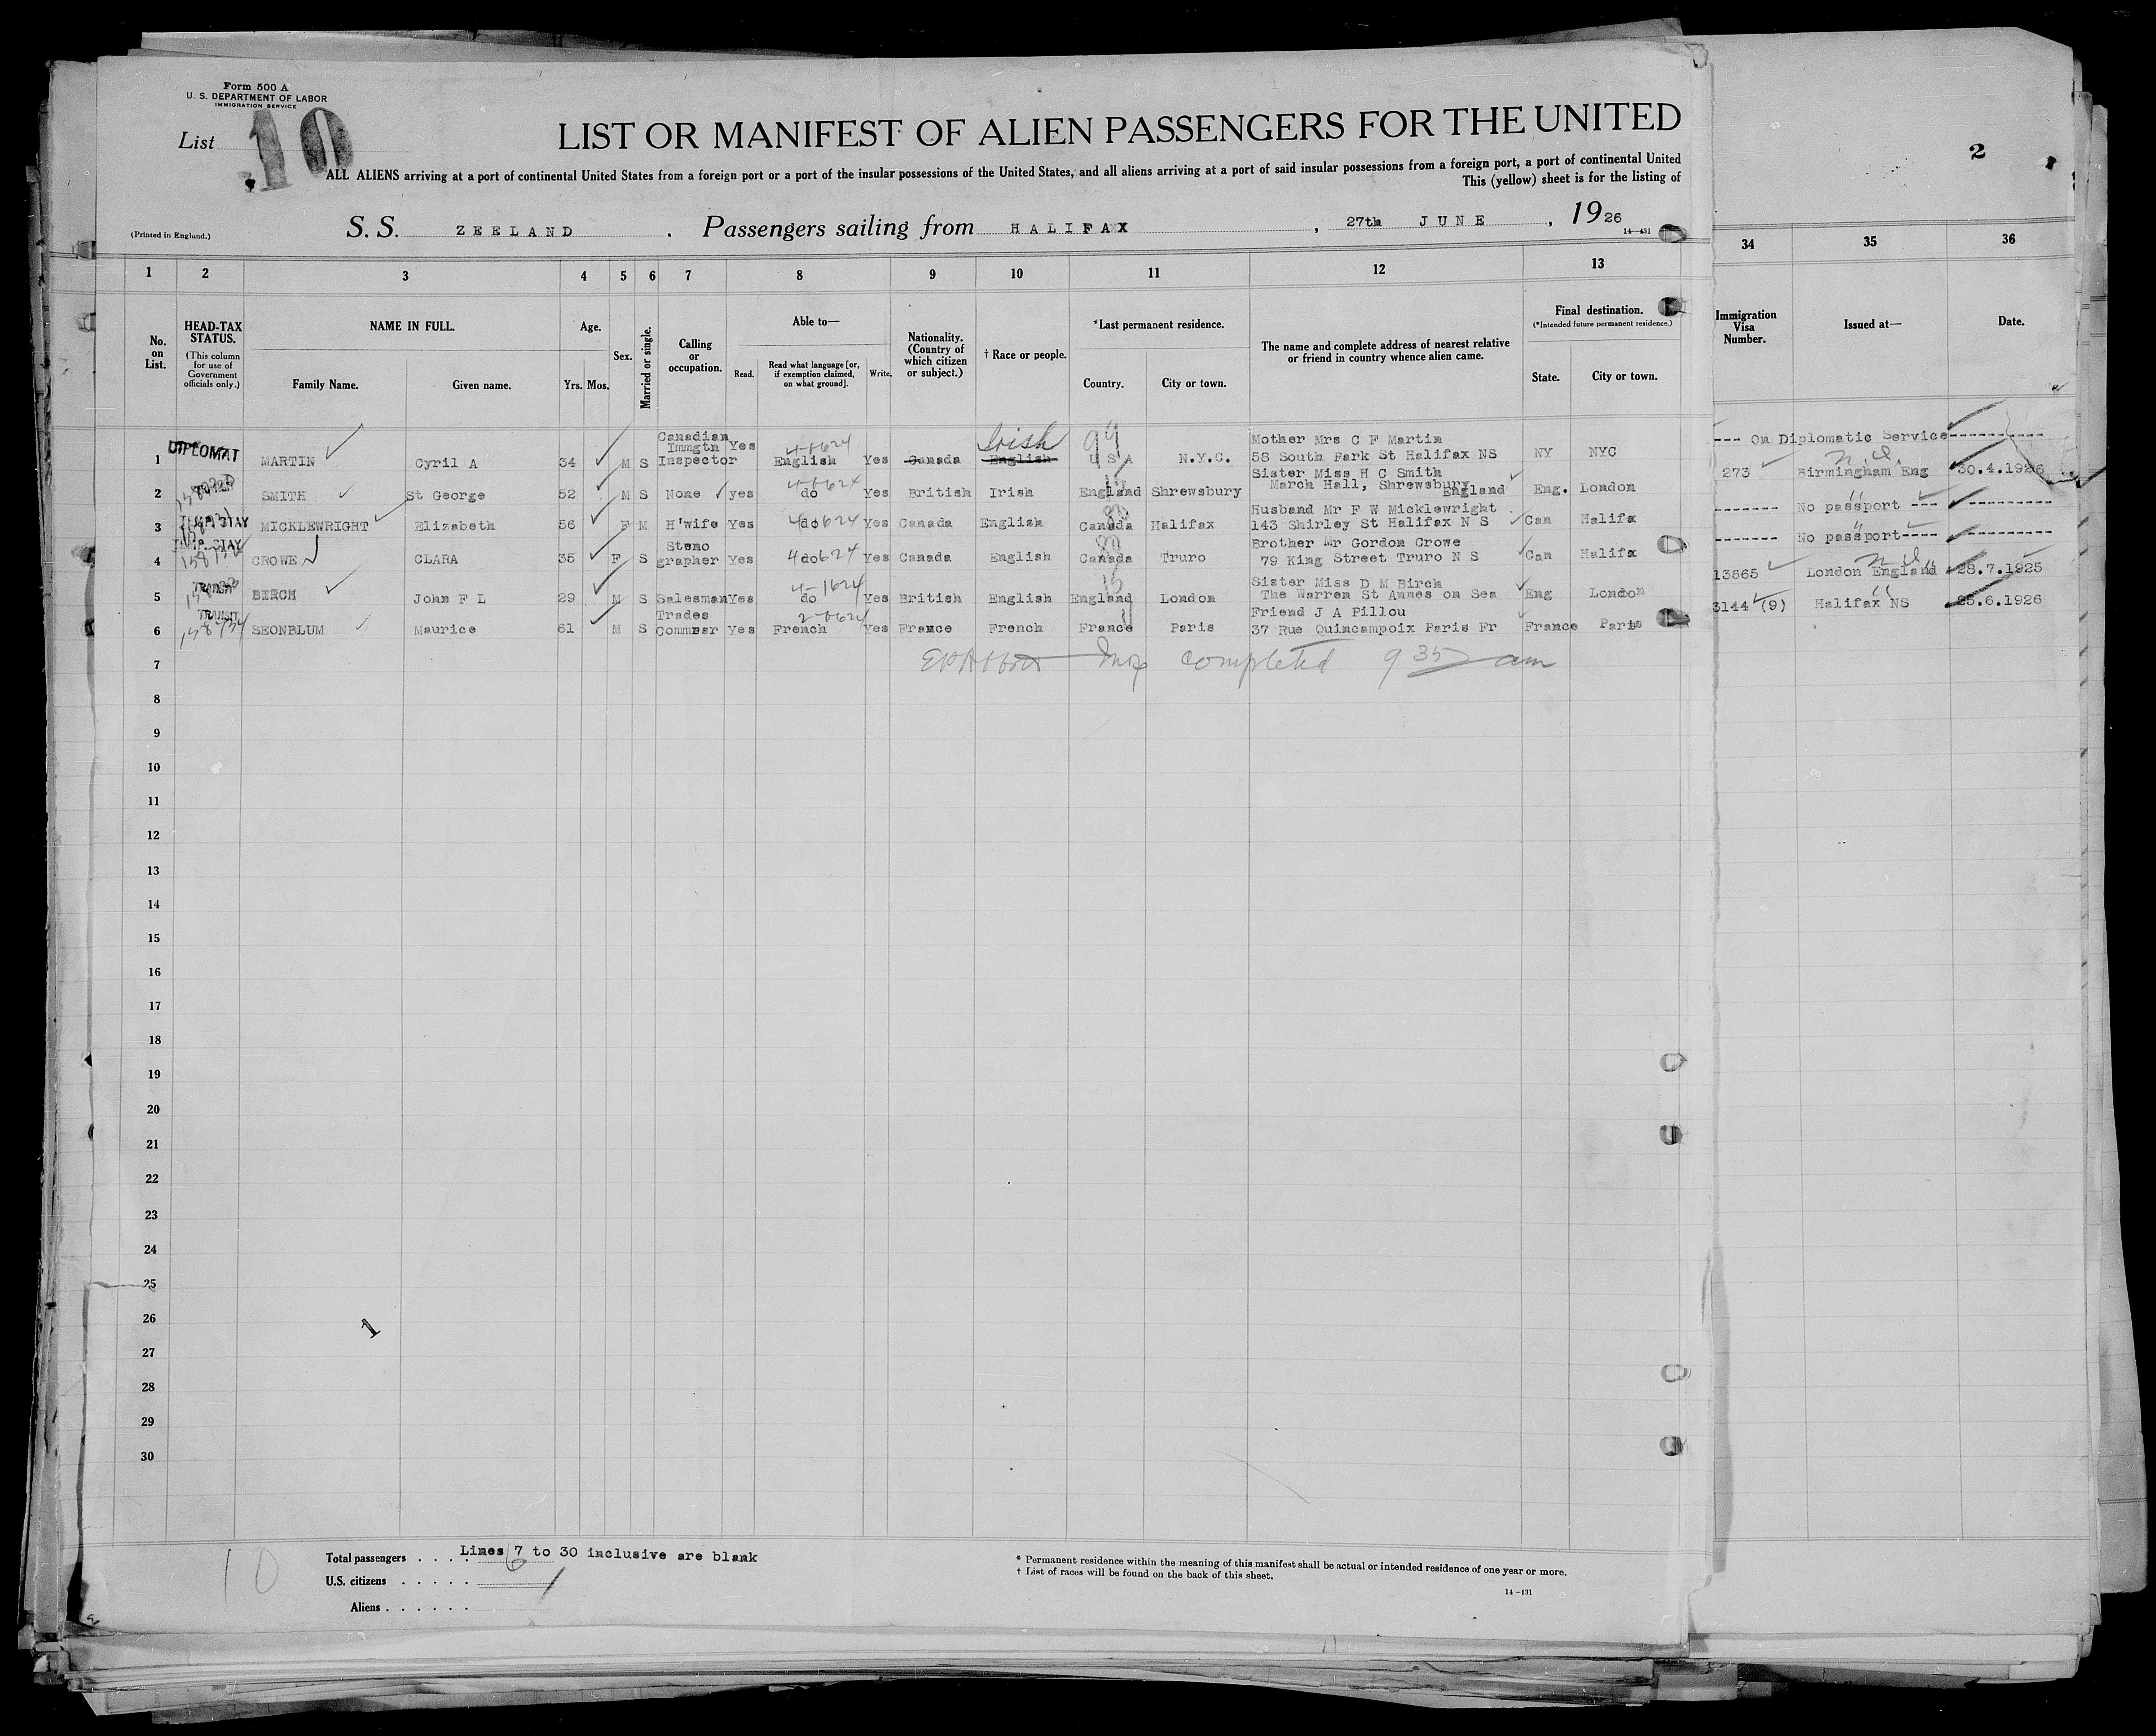 Form 500 A
U. S. DEPARTMENT OF LABOR
IMMIGRATION SERVICE
List 10
LIST OR MANIFEST OF ALIEN PASSENGERS FOR THE UNITED
ALL ALIENS arriving at a port of continental United States from a foreign port or a port of the insular possessions of the United States, and all aliens arriving at a port of said insular possessions from a foreign port, a port of continental United
This (yellow) sheet is for the listing of
2
(Printed in England.)
S. S. ZEELAND. Passengers sailing from HALIFAX, 27th JUNE, 1926
14-431
1 2 3 4 5 6 7 8 9 10 11 12 13 34 35 36
No. on List.
HEAD-TAX STATUS.
(This column for use of Government officials only.)
NAME IN FULL.
Family Name. Given name.
Age.
Yrs. Mos.
Sex.
Married or single.
Calling or occupation.
Able to—
Read. Read what language [or, if exemption claimed, on what ground]. Write.
Nationality. (Country of which citizen or subject.)
† Race or people.
*Last permanent residence.
Country. City or town.
The name and complete address of nearest relative or friend in country whence alien came.
Final destination.
(*Intended future permanent residence.)
State. City or town.
Immigration Visa Number.
Issued at—
Date.
1 DIPLOMAT MARTIN Cyril A 34 M S Canadian Immgtn Inspector Yes English Yes Canada English Irish U S A N.Y.C. Mother Mrs C F Martin 58 South Park St Halifax NS NY NYC --- On Diplomatic Service----------
2 SMITH St George 52 M S None yes do Yes British Irish England Shrewsbury Sister Miss H C Smith March Hall, Shrewsbury England Eng. London 273 Birmingham Eng 30.4.1926
3 TEMP. STAY MICKLEWRIGHT Elizabeth 56 F M H'wife Yes do Yes Canada English Canada Halifax Husband Mr F W Micklewright 143 Shirley St Halifax N S Can Halifx ------- No passport --- ----------
4 TEMP. STAY CROWE CLARA 35 F S Steno grapher Yes do Yes Canada English Canada Truro Brother Mr Gordon Crowe 79 King Street Truro N S Can Halifx ------- No passport---- ----------
5 TRANSIT BIRCH John F L 29 M S Salesman Yes do Yes British English England London Sister Miss D M Birch The Warren St Annes on Sea Eng London 13665 London England 28.7.1925
6 TRANSIT SEONBLUM Maurice 61 M S Trades Commssr Yes French Yes France French France Paris Friend J A Pillou 37 Rue Quincampoix Paris Fr France Paris 3144 (9) Halifax NS 25.6.1926
7 Insp completed 9 35 am
8
9
10
11
12
13
14
15
16
17
18
19
20
21
22
23
24
25
26
27
28
29
30
1
10
Total passengers . . . . Lines 7 to 30 inclusive are blank
6
U.S. citizens . . . . .
Aliens . . . . . .
* Permanent residence within the meaning of this manifest shall be actual or intended residence of one year or more.
† List of races will be found on the back of this sheet.
14-431